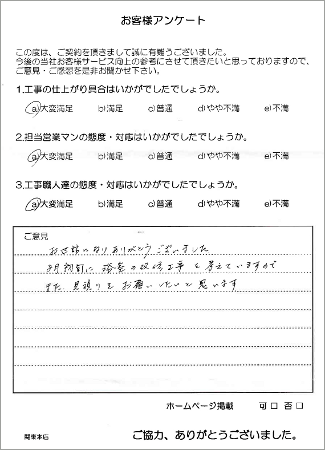 お客様アンケート
この度は、ご契約を頂きまして誠に有難うございました。
今後の当社お客様サービス向上の参考にさせて頂きたいと思っておりますので、
ご意見・ご感想を是非お聞かせ下さい。
1.工事の仕上がり具合はいかがでしたでしょうか。
a)大変満足 b)満足 c)普通 d)やや不満 e)不満
2.担当営業マンの態度・対応はいかがでしたでしょうか。
a)大変満足 b)満足 c)普通 d)やや不満 e)不満
3.工事職人達の態度・対応はいかがでしたでしょうか。
a)大変満足 b)満足 c)普通 d)やや不満 e)不満
ご意見
お世話になりありがとうございました
に 改修工事を考えていますので
また見積りをお願いしたいと思います
ホームページ掲載 可口 否口
関東本店 ご協力、ありがとうございました。